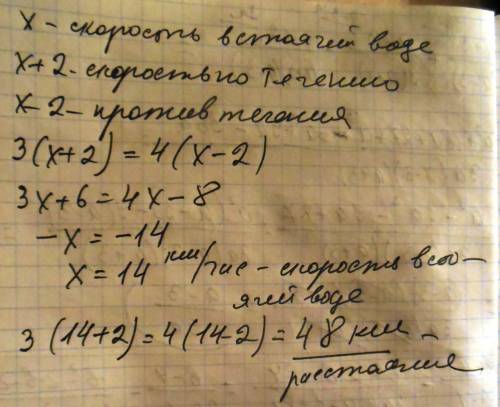 x - скорость встоячей воде
x+2 - скорость по течению
x-2 - против течения
3(x+2)=4(x-2)
3x+6=4x-8
-x=-14
x=14 км/час - скорость в сто-
ячей воде
3(14+2)=4(14-2)=48 км -
расстояние